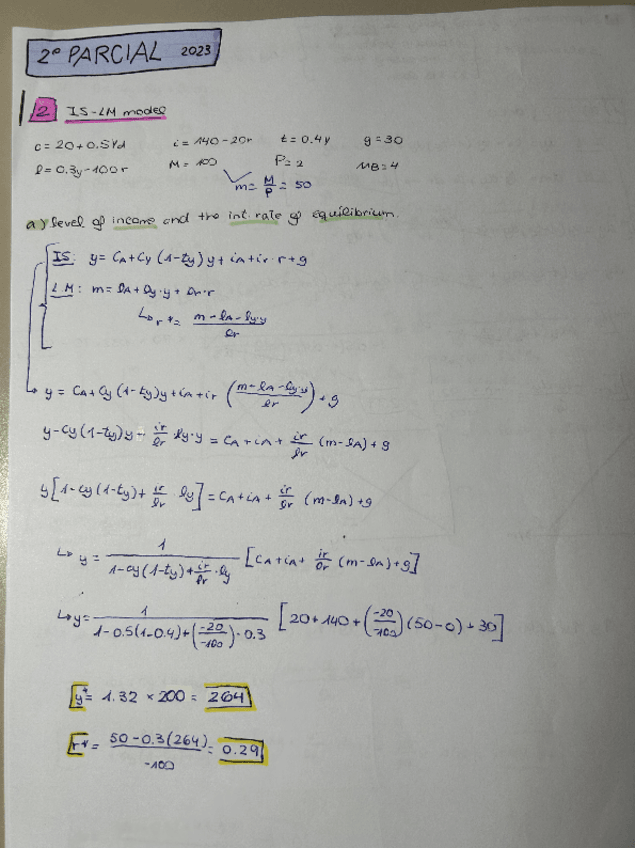 2º PARCIAL 2023
2 IS-LM model
c = 20 + 0.5Yd i = 140 - 20r t = 0.4y g = 30
l = 0.3y - 100r M = 100 P = 2 MB = 4
m = M/P = 50
a) level of income and the int. rate of equilibrium.
IS: y = CA + Cy (1-ty) y + iA + ir · r + g
LM: m = lA + ly · y + lr · r
↳ r* = (m - lA - ly·y)/lr
↳ y = CA + Cy (1-ty)y + iA + ir ((m - lA - ly·y)/lr) + g
y - Cy (1-ty)y + ir/lr ly·y = CA + iA + ir/lr (m - lA) + g
y [1 - cy (1-ty) + ir/lr · ly] = CA + iA + ir/lr (m - lA) + g
↳ y = 1/(1 - cy (1-ty) + ir/lr · ly) [CA + iA + ir/lr (m - lA) + g]
↳ y = 1/(1 - 0.5(1-0.4) + (-20/-100) · 0.3) [20 + 140 + (-20/-100) (50 - 0) + 30]
y* = 1.32 × 200 = 264
r* = (50 - 0.3(264))/-100 = 0.29